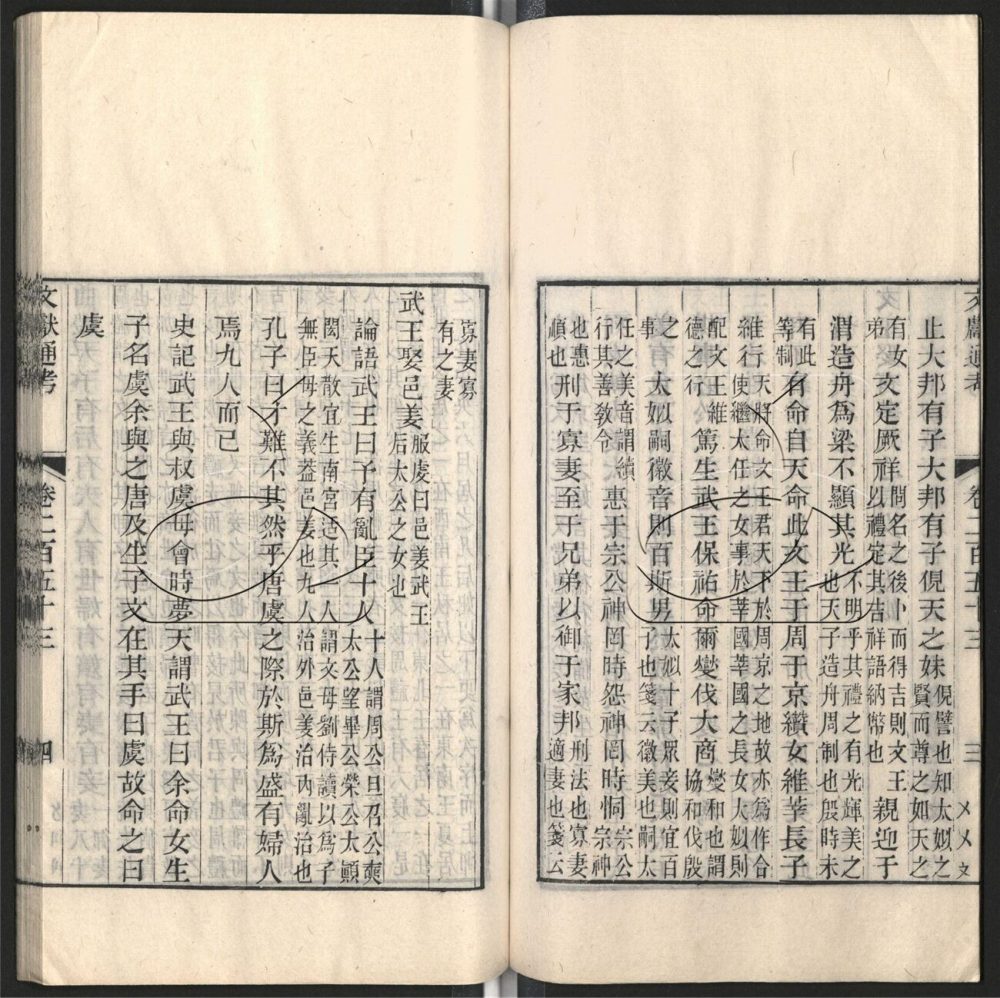 止大邦有子大邦有子俔天之妹俔譬也知太姒之賢而尊之如天之
有女弟文定厥祥問名之後卜而得吉則文王以禮定其吉祥謂納幣也親迎于
渭造舟為梁不顯其光不明乎其禮之有光輝美之也天子造舟周制也殷時未
有此等制有命自天命此文王于周于京纘女維莘長子
維行天將命文王君天下於周京之地故亦為作合纘行使繼太任之女事於莘國莘國之長女太姒則
配文王維德之行篤生武王保祐命爾燮伐大商燮和也謂協和伐殷
之事太姒嗣徽音則百斯男太姒十子眾妾則宜百子也箋云徽美也嗣太
任之美音謂續行其善敎令惠于宗公神罔時怨神罔時恫宗公宗神
也惠順也刑于寡妻至于兄弟以御于家邦刑法也寡妻適妻也箋云
文獻通考 卷二百五十三 三
寡妻寡有之妻
武王娶邑姜服虔曰邑姜武王后太公之女也
論語武王曰予有亂臣十人十人謂周公旦召公奭太公望畢公榮公太顛
閎夭散宜生南宮适其一人謂文母劉侍讀以為子無臣母之義蓋邑姜也九人治外邑姜治内亂治也
孔子曰才難不其然乎唐虞之際於斯為盛有婦人
焉九人而已
史記武王與叔虞母會時夢天謂武王曰余命女生
子名虞余與之唐及生子文在其手曰虞故命之曰
虞
文獻通考 卷二百五十三 四